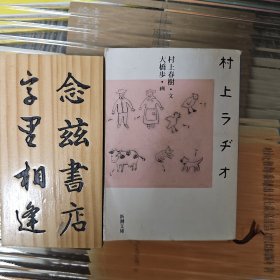 念兹書店
字里相逢
村上ラヂオ
村上春樹・文
大橋歩・画
新潮文庫